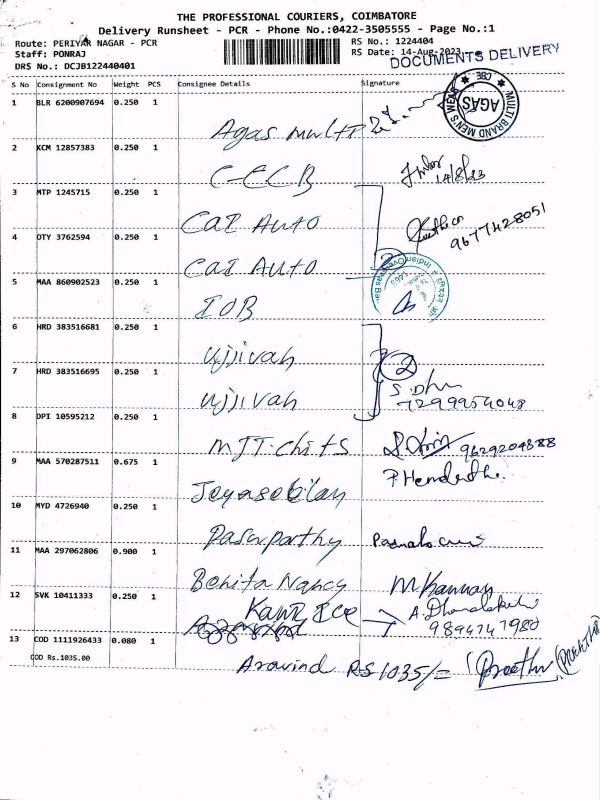 THE PROFESSIONAL COURIERS, COIMBATORE
Delivery Runsheet - PCR - Phone No.:0422-3505555 - Page No.:1
Route: PERIYAR NAGAR - PCR RS No.: 1224404
Staff: PONRAJ RS Date: 14-Aug-2023
DRS No.: DCJB122440401 DOCUMENTS DELIVERY
S No Consignment No Weight PCS Consignee Details Signature
1 BLR 6200907694 0.250 1
Agas multi
MULTI BRAND MEN'S WEAR CBE AGAS
2 KCM 12857383 0.250 1
CECB 14/8/23
3 MTP 1245715 0.250 1
CAI AUTO 9677428051
4 OTY 3762594 0.250 1
CAI AUTO 2
5 MAA 860902523 0.250 1
IOB
Indian Overseas Bank
6 HRD 383516681 0.250 1
Ujjivan 2
7 HRD 383516695 0.250 1
Ujjivan 7299954048
8 DPI 10595212 0.250 1
MJT.chits 9629204888
9 MAA 570287511 0.675 1
Jeyasebilan
10 MYD 4726940 0.250 1
Pasuparthy
11 MAA 297062806 0.900 1
Benita Nancy M.Kannan
12 SVK 10411333 0.250 1
9894747980
13 COD 1111926433 0.080 1
COD Rs.1035.00
Aravind RS 1035/= Preethi